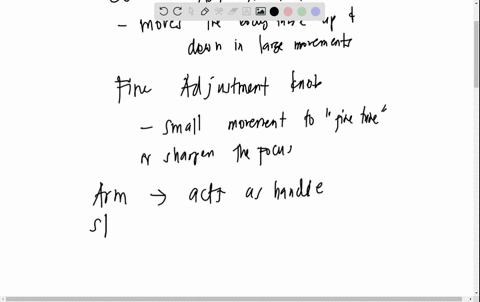 - moves the body tube up &
down in large movements
Fine Adjustment knob
- small movement to "fine tune"
or sharpen the focus
Arm → acts as handle
sl